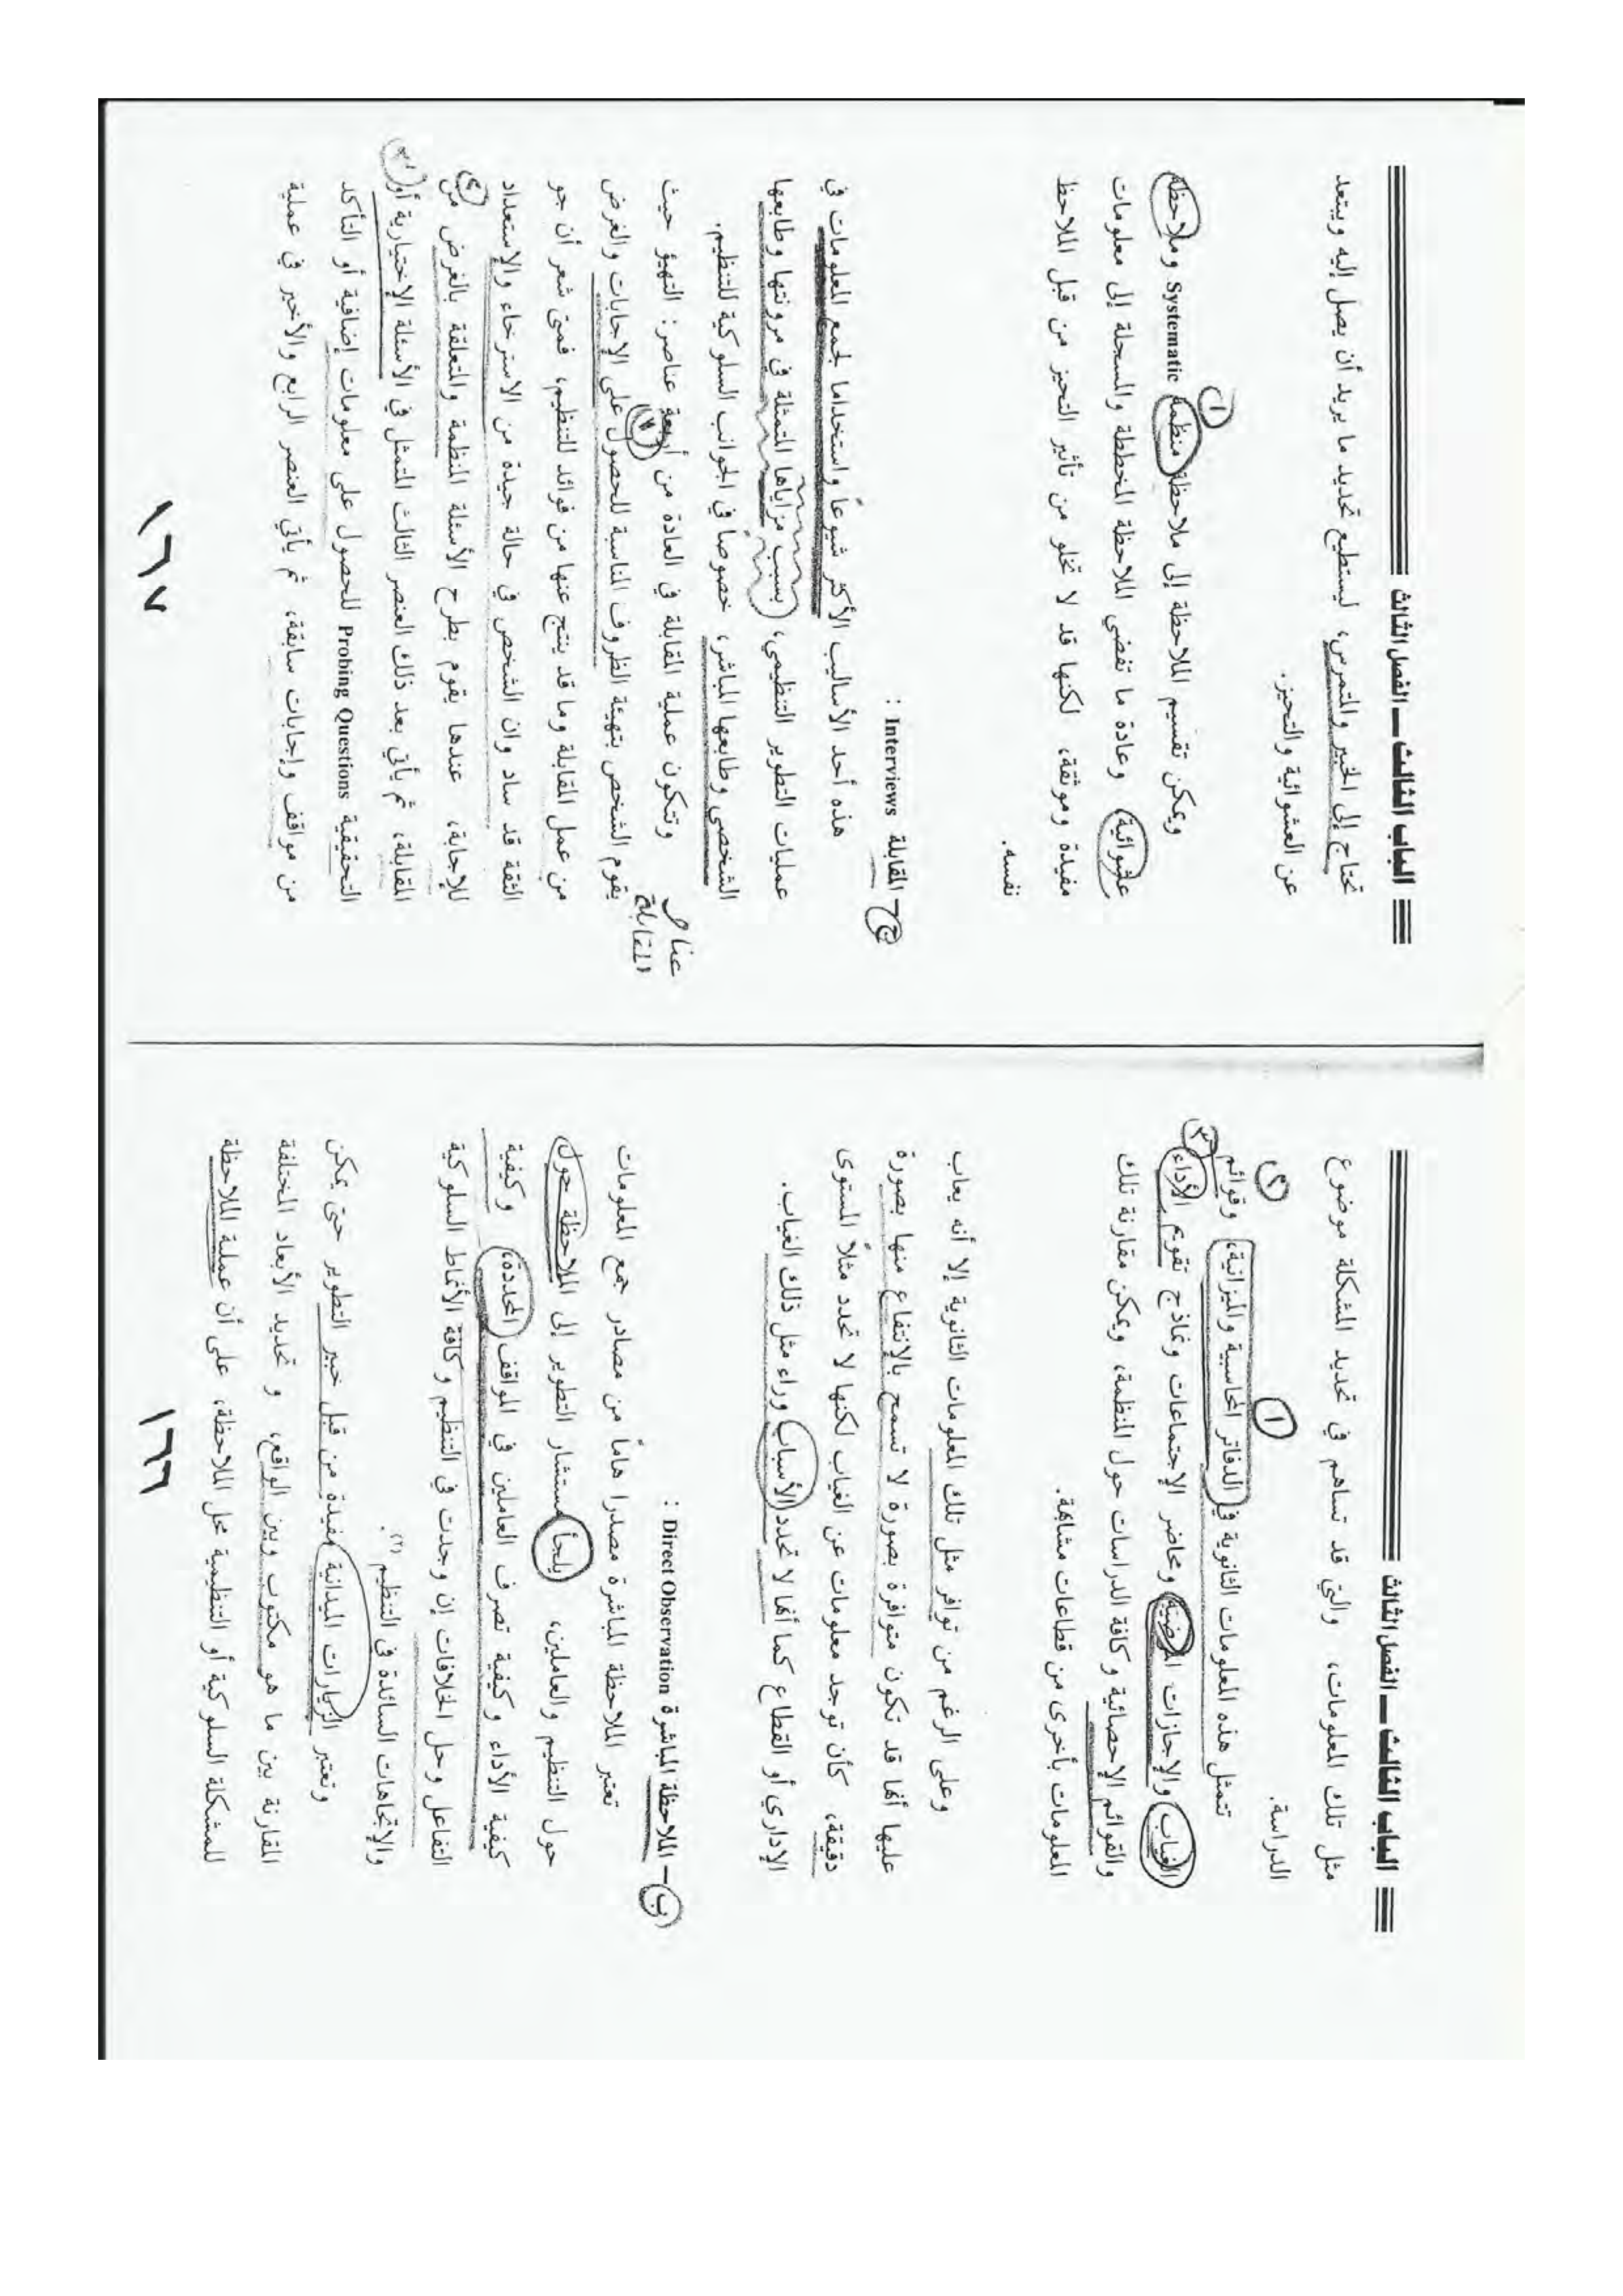 الباب الثالث ــ الفصل الثالث
مثل تلك المعلومات، والتي قد تساهم في تحديد المشكلة موضوع
الدراسة.
١
٢
تتمثل هذه المعلومات الثانوية في الدفاتر الحاسبية والميزانية، وقوائم
٣
الغياب والإجازات المرضية ومحاضر الإجتماعات ونماذج تقويم الأداء
والقوائم الإحصائية وكافة الدراسات حول المنظمة، ويمكن مقارنة تلك
المعلومات بأخرى من قطاعات مشابهة.
وعلى الرغم من توافر مثل تلك المعلومات الثانوية إلا أنه يعاب
عليها أنها قد تكون متوافرة بصورة لا تسمح بالإنتفاع منها بصورة
دقيقة، كأن توجد معلومات عن الغياب لكنها لا تحدد مثلاً المستوى
الإداري أو القطاع كما أنها لا تحدد الأسباب وراء مثل ذلك الغياب.
ب ـ الملاحظة المباشرة Direct Observation :
تعتبر الملاحظة المباشرة مصدرا هاماً من مصادر جمع المعلومات
حول التنظيم والعاملين، يلجأ مستشار التطوير إلى الملاحظة حول
كيفية الأداء وكيفية تصرف العاملين في المواقف المحددة، وكيفية
التفاعل وحل الخلافات إن وجدت في التنظيم وكافة الأنماط السلوكية
والإتجاهات السائدة في التنظيم (٢).
وتعتبر الزيارات الميدانية مفيدة من قبل خبير التطوير حتى يمكن
المقارنة بين ما هو مكتوب وبين الواقع، و تحديد الأبعاد المختلفة
للمشكلة السلوكية أو التنظيمية محل الملاحظة، على أن عملية الملاحظة
١٦٦
الباب الثالث ــ الفصل الثالث
تحتاج إلى الخبير والمتمرس، ليستطيع تحديد ما يريد أن يصل إليه ويبتعد
عن العشوائية والتحيز.
١
ويمكن تقسيم الملاحظة إلى ملاحظة منظمة Systematic وملاحظة
عشوائية، وعادة ما تفضي الملاحظة المخططة والمسجلة إلى معلومات
مفيدة وموثقة، لكنها قد لا تخلو من تأثير التحيز من قبل الملاحظ
نفسه.
ج ـ المقابلة Interviews :
هذه أحد الأساليب الأكثر شيوعاً واستخداما لجمع المعلومات في
عمليات التطوير التنظيمي، بسبب مزاياها المتمثلة في مرونتها وطابعها
الشخصي وطابعها المباشر، خصوصاً في الجوانب السلوكية للتنظيم.
عناصر
المقابلة
وتتكون عملية المقابلة في العادة من أربعة عناصر: التهيؤ حيث
١
يقوم الشخص بتهيئة الظروف المناسبة للحصول على الإجابات والغرض
من عمل المقابلة وما قد ينتج عنها من فوائد للتنظيم، فمتى شعر أن جو
الثقة قد ساد وان الشخص في حالة جيدة من الاسترخاء والإستعداد
٢
للإجابة، عندها يقوم بطرح الأسئلة المنظمة والمتعلقة بالغرض من
٣
المقابلة، ثم يأتي بعد ذلك العنصر الثالث المتمثل في الأسئلة الإختيارية أو
التحقيقية Probing Questions للحصول على معلومات إضافية أو التأكد
من مواقف وإجابات سابقة، ثم يأتي العنصر الرابع والأخير في عملية
١٦٧